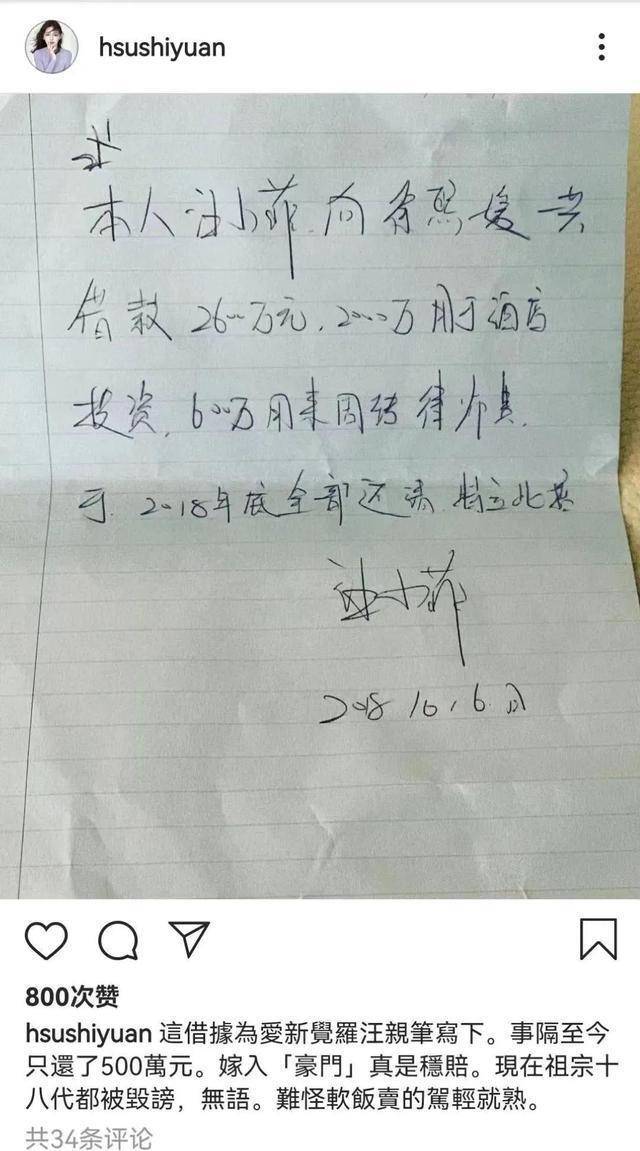 hsushiyuan
本人汪小菲 向徐熙媛共
借款 2600万元,2000万用于酒店
投资,600万用来周转律师费,
于 2018年底全部还清 特立此
汪小菲
2018 10,6
800次赞
hsushiyuan 這借據為愛新覺羅汪親筆寫下。事隔至今
只還了500萬元。嫁入「豪門」真是穩賠。現在祖宗十
八代都被毀謗,無語。難怪軟飯賣的駕輕就熟。
共34条评论